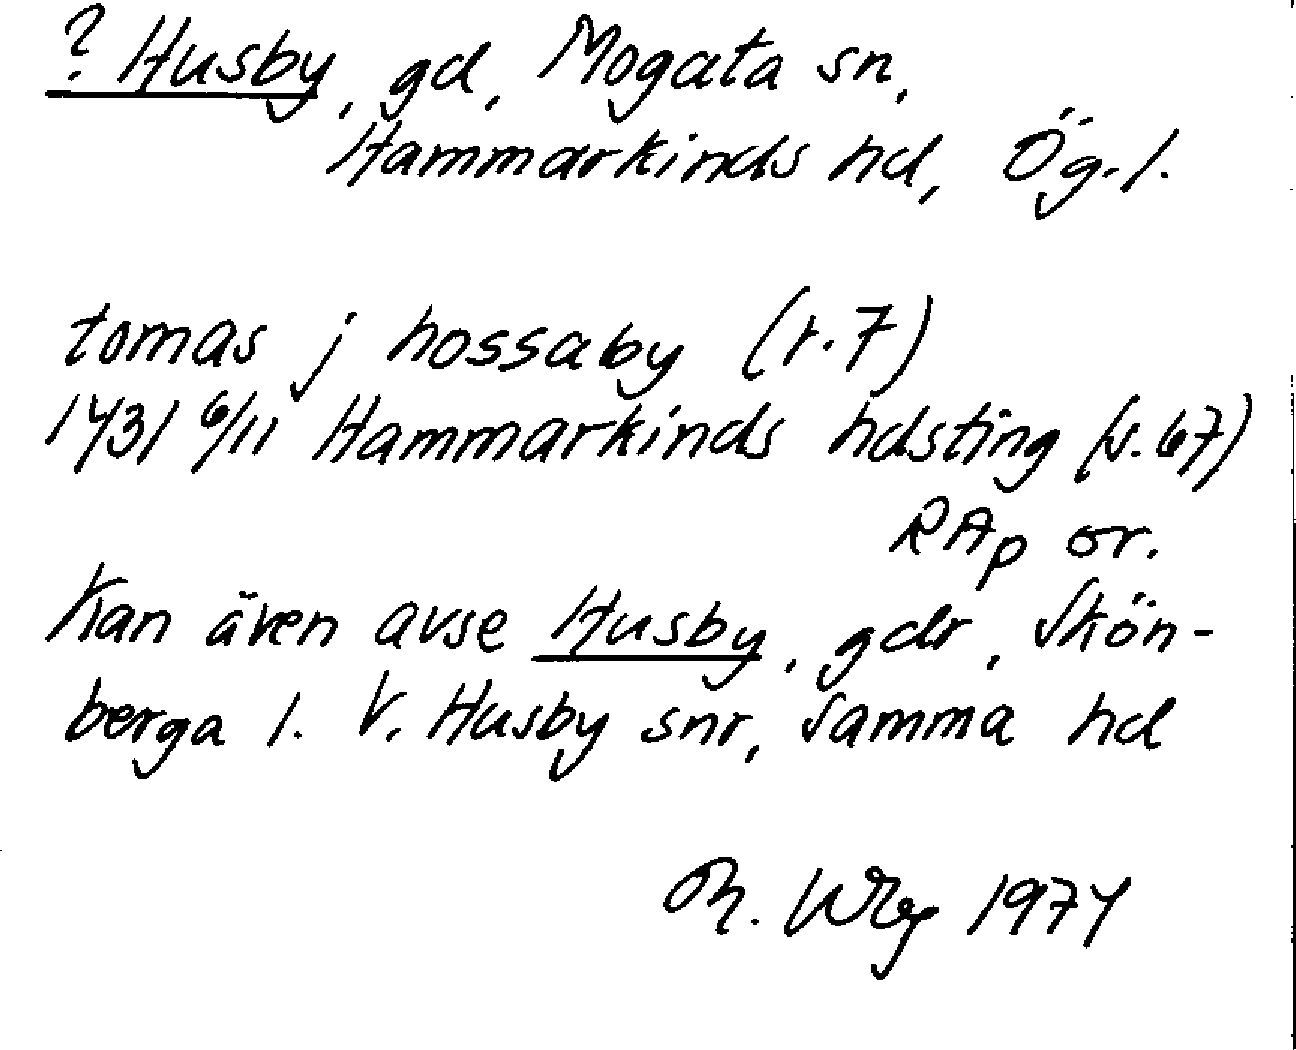 ? Husby, gd, Mogata sn,
Hammarkinds hd, Ög. l.
tomas j hossaby (r. 7)
1431 6/11 Hammarkinds hdsting (s. 67)
RAp or.
Kan även avse Husby, gdr, Skön-
berga l. V. Husby snr, samma hd
1974